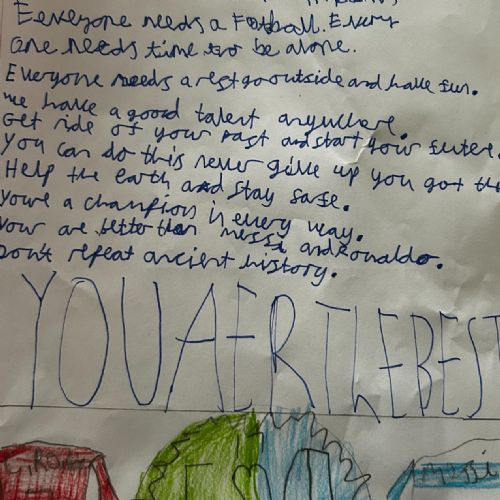 Eeveryone needs a Football. Every
one needs time too be alone.
Everyone needs a rest go outside and have fun.
we have a good talent anywhere.
Get ride of your past and start your futere.
You can do this never give up you got th
Help the earth and stay safe.
youre a champion in every way.
your are better than messi and Ronaldo.
Don't repeat ancient history.
YOU AER THE BEST
messi